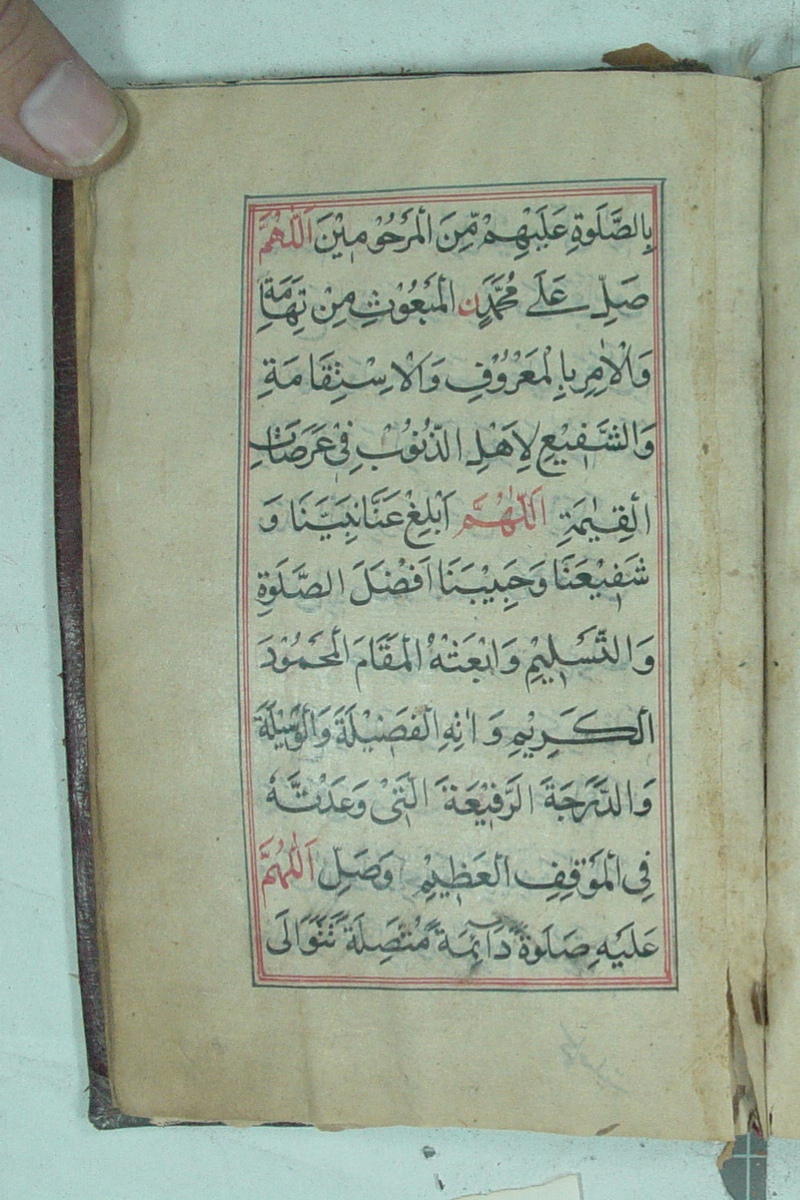 بِالصَّلَوةِ عَلَيْهِمْ مِّنَ الْمَرْحُوْمِيْنَ اَللّٰهُمَّ
صَلِّ عَلَى مُحَمَّدٍ نِ الْمَبْعُوْثِ مِنْ تِهَامَةِ
وَالْاٰمِرِ بِالْمَعْرُوْفِ وَالْاِسْتِقَامَةِ
وَالشَّفِيْعِ لِاَهْلِ الذُّنُوْبِ فِيْ عَرَصَاتِ
الْقِيٰمَةِ اَللّٰهُمَّ اَبْلِغْ عَنَّا نَبِيَّنَا وَ
شَفِيْعَنَا وَحَبِيْبَنَا اَفْضَلَ الصَّلَوةِ
وَالتَّسْلِيْمِ وَابْعَثْهُ الْمَقَامَ الْمَحْمُوْدَ
الْكَرِيْمِ وَاٰتِهِ الْفَضِيْلَةَ وَالْوَسِيْلَةَ
وَالدَّرَجَةَ الرَّفِيْعَةَ الَّتِيْ وَعَدْتَّهُ
فِي الْمَوْقِفِ الْعَظِيْمِ وَصَلِّ اَللّٰهُمَّ
عَلَيْهِ صَلَوةً دَآئِمَةً مُّتَّصِلَةً تَتَوَالَى